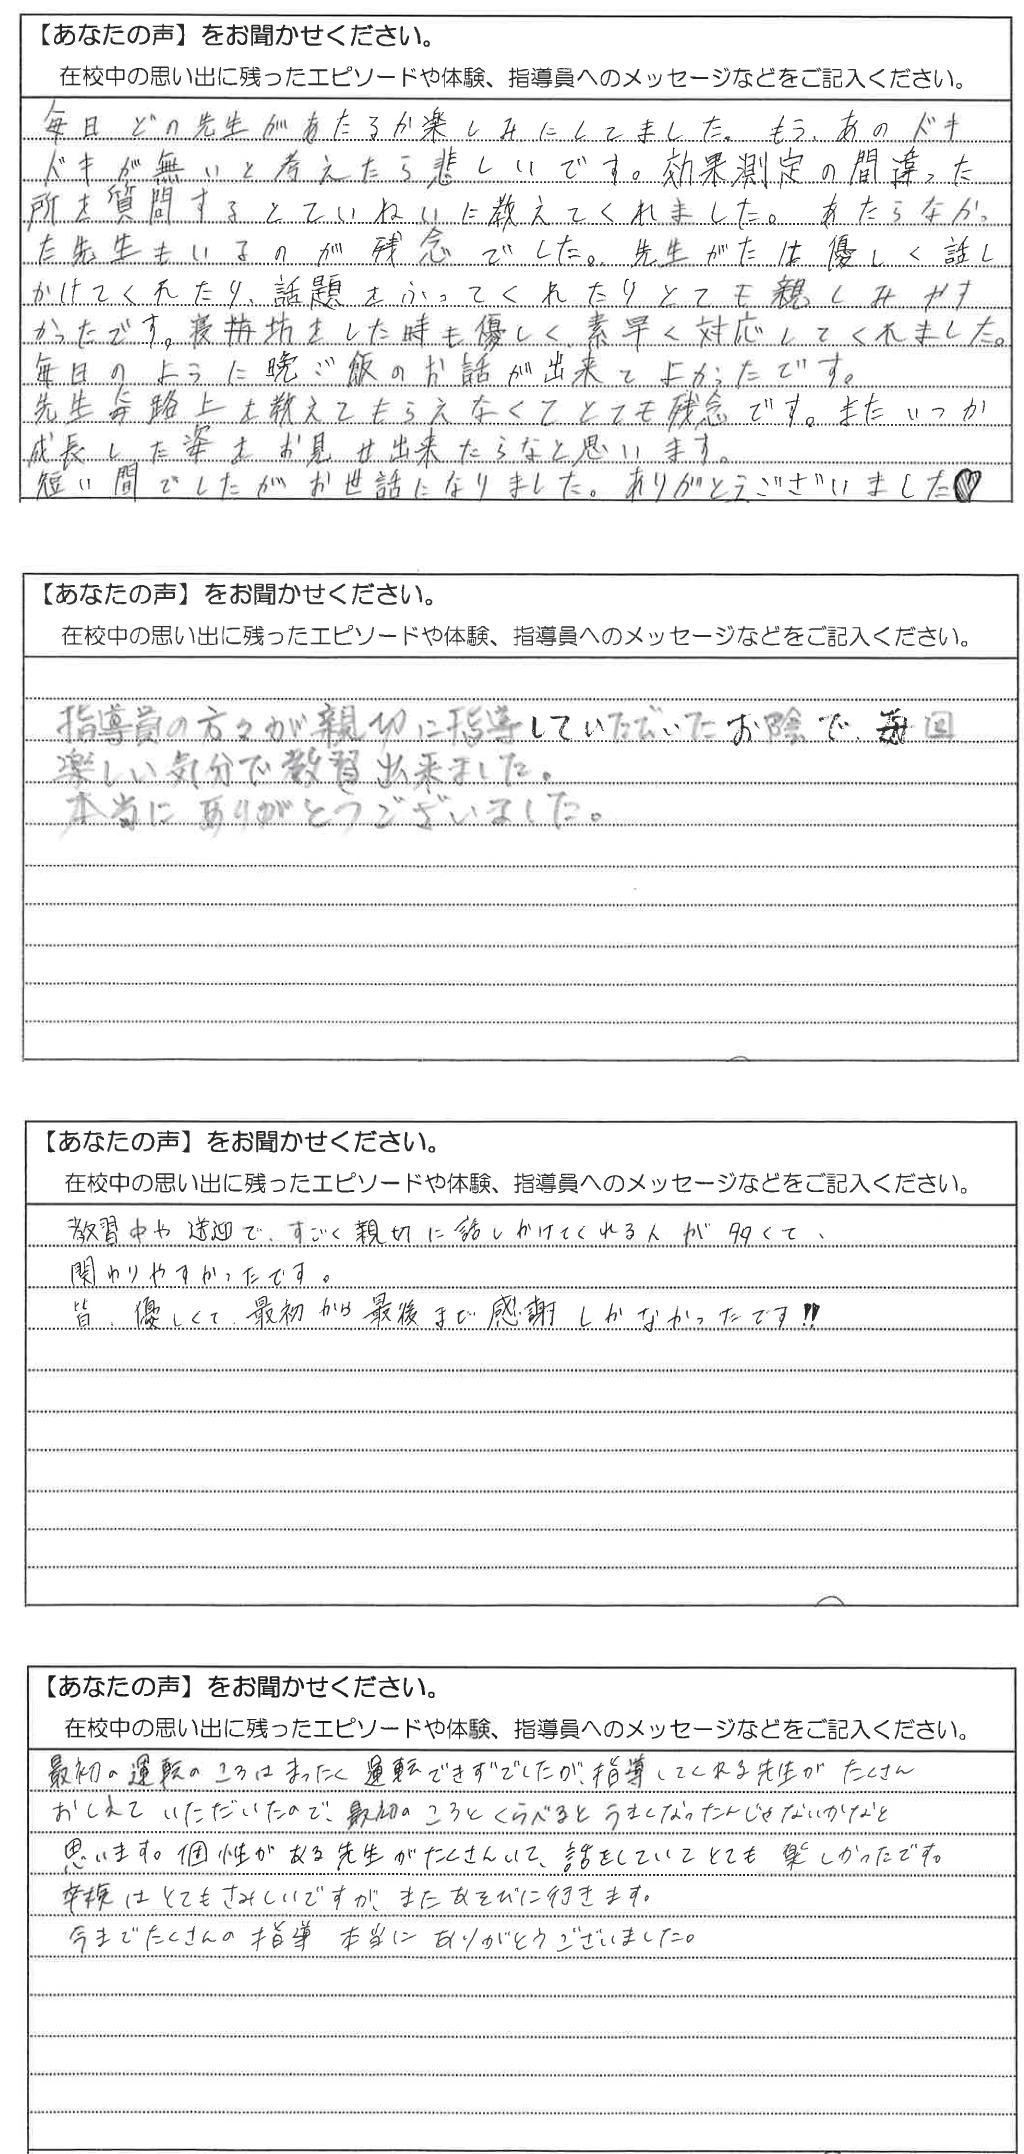 【あなたの声】をお聞かせください。
在校中の思い出に残ったエピソードや体験、指導員へのメッセージなどをご記入ください。
毎日どの先生があたるか楽しみにしてました。もう、あのドキ
ドキが無いと考えたら悲しいです。効果測定の間違った
所を質問するとていねいに教えてくれました。あたらなかっ
た先生もいるのが残念でした。先生がたは優しく話し
かけてくれたり、話題をふってくれたりとても親しみやす
かったです。寝坊をした時も優しく、素早く対応してくれました。
毎日のように晩ご飯のお話が出来てよかったです。
先生毎路上を教えてもらえなくてとても残念です。またいつか
成長した姿をお見せ出来たらなと思います。
短い間でしたがお世話になりました。ありがとうございました♥
【あなたの声】をお聞かせください。
在校中の思い出に残ったエピソードや体験、指導員へのメッセージなどをご記入ください。
指導員の方々が親切に指導していただいたお陰で、毎回
楽しい気分で教習出来ました。
本当にありがとうございました。
【あなたの声】をお聞かせください。
在校中の思い出に残ったエピソードや体験、指導員へのメッセージなどをご記入ください。
教習中や送迎で、すごく親切に話しかけてくれる人が多くて、
関わりやすかったです。
皆 優しくて最初から最後まで感謝しかなかったです!!
【あなたの声】をお聞かせください。
在校中の思い出に残ったエピソードや体験、指導員へのメッセージなどをご記入ください。
最初の運転のころはまったく運転できずでしたが、指導してくれる先生がたくさん
おしえていただいたので、最初のころとくらべるとうまくなったんじゃないかなと
思います。個性がある先生がたくさんいて、話をしていてとても楽しかったです。
卒検はとてもさみしいですが、またあそびに行きます。
今までたくさんの指導 本当にありがとうございました。